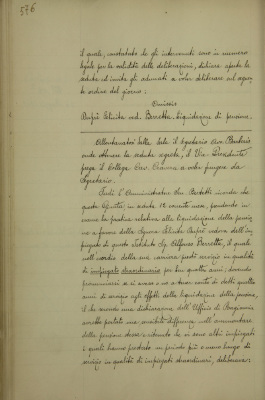 576
il quale, constatato che gli intervenuti sono in numero
legale per la validità delle deliberazioni, dichiara aperta la
seduta ed invita gli adunati a voler deliberare sul seguen
te ordine del giorno:
Omissis
Dupré Elinda ved. Berretta. Liquidazione di pensione.
Allontanatosi dalla sala il Segretario Avv.
onde ottenere la seduta segreta, il Vice Presidente
prega il Collega Avv. a voler fungere da
Segretario.
Indi l'Amministratore Avv. ricorda che
questa Giunta, in seduta 12 corrente mese, prendendo in
esame la pratica relativa alla liquidazione della pensio
ne a favore della Signora Elinda Dupré vedova dell'im
piegato di questo Sig. Alfonso Berretta, il quale
nell'esordio della sua carriera prestò servizio in qualità
di impiegato straordinario per ben quattro anni, dovendo
pronunciarsi se si aveva o no a tener conto di detti quattro
anni di servizio agli effetti della liquidazione della pensione,
il che secondo una dichiarazione dell'Ufficio di Ragioneria
avrebbe portato una sensibile differenza nell'ammontare
della pensione stessa e ritenuto che vi sono altri impiegati
i quali hanno prestato un periodo più o meno lungo di
servizio in qualità di impiegati straordinari, deliberava: